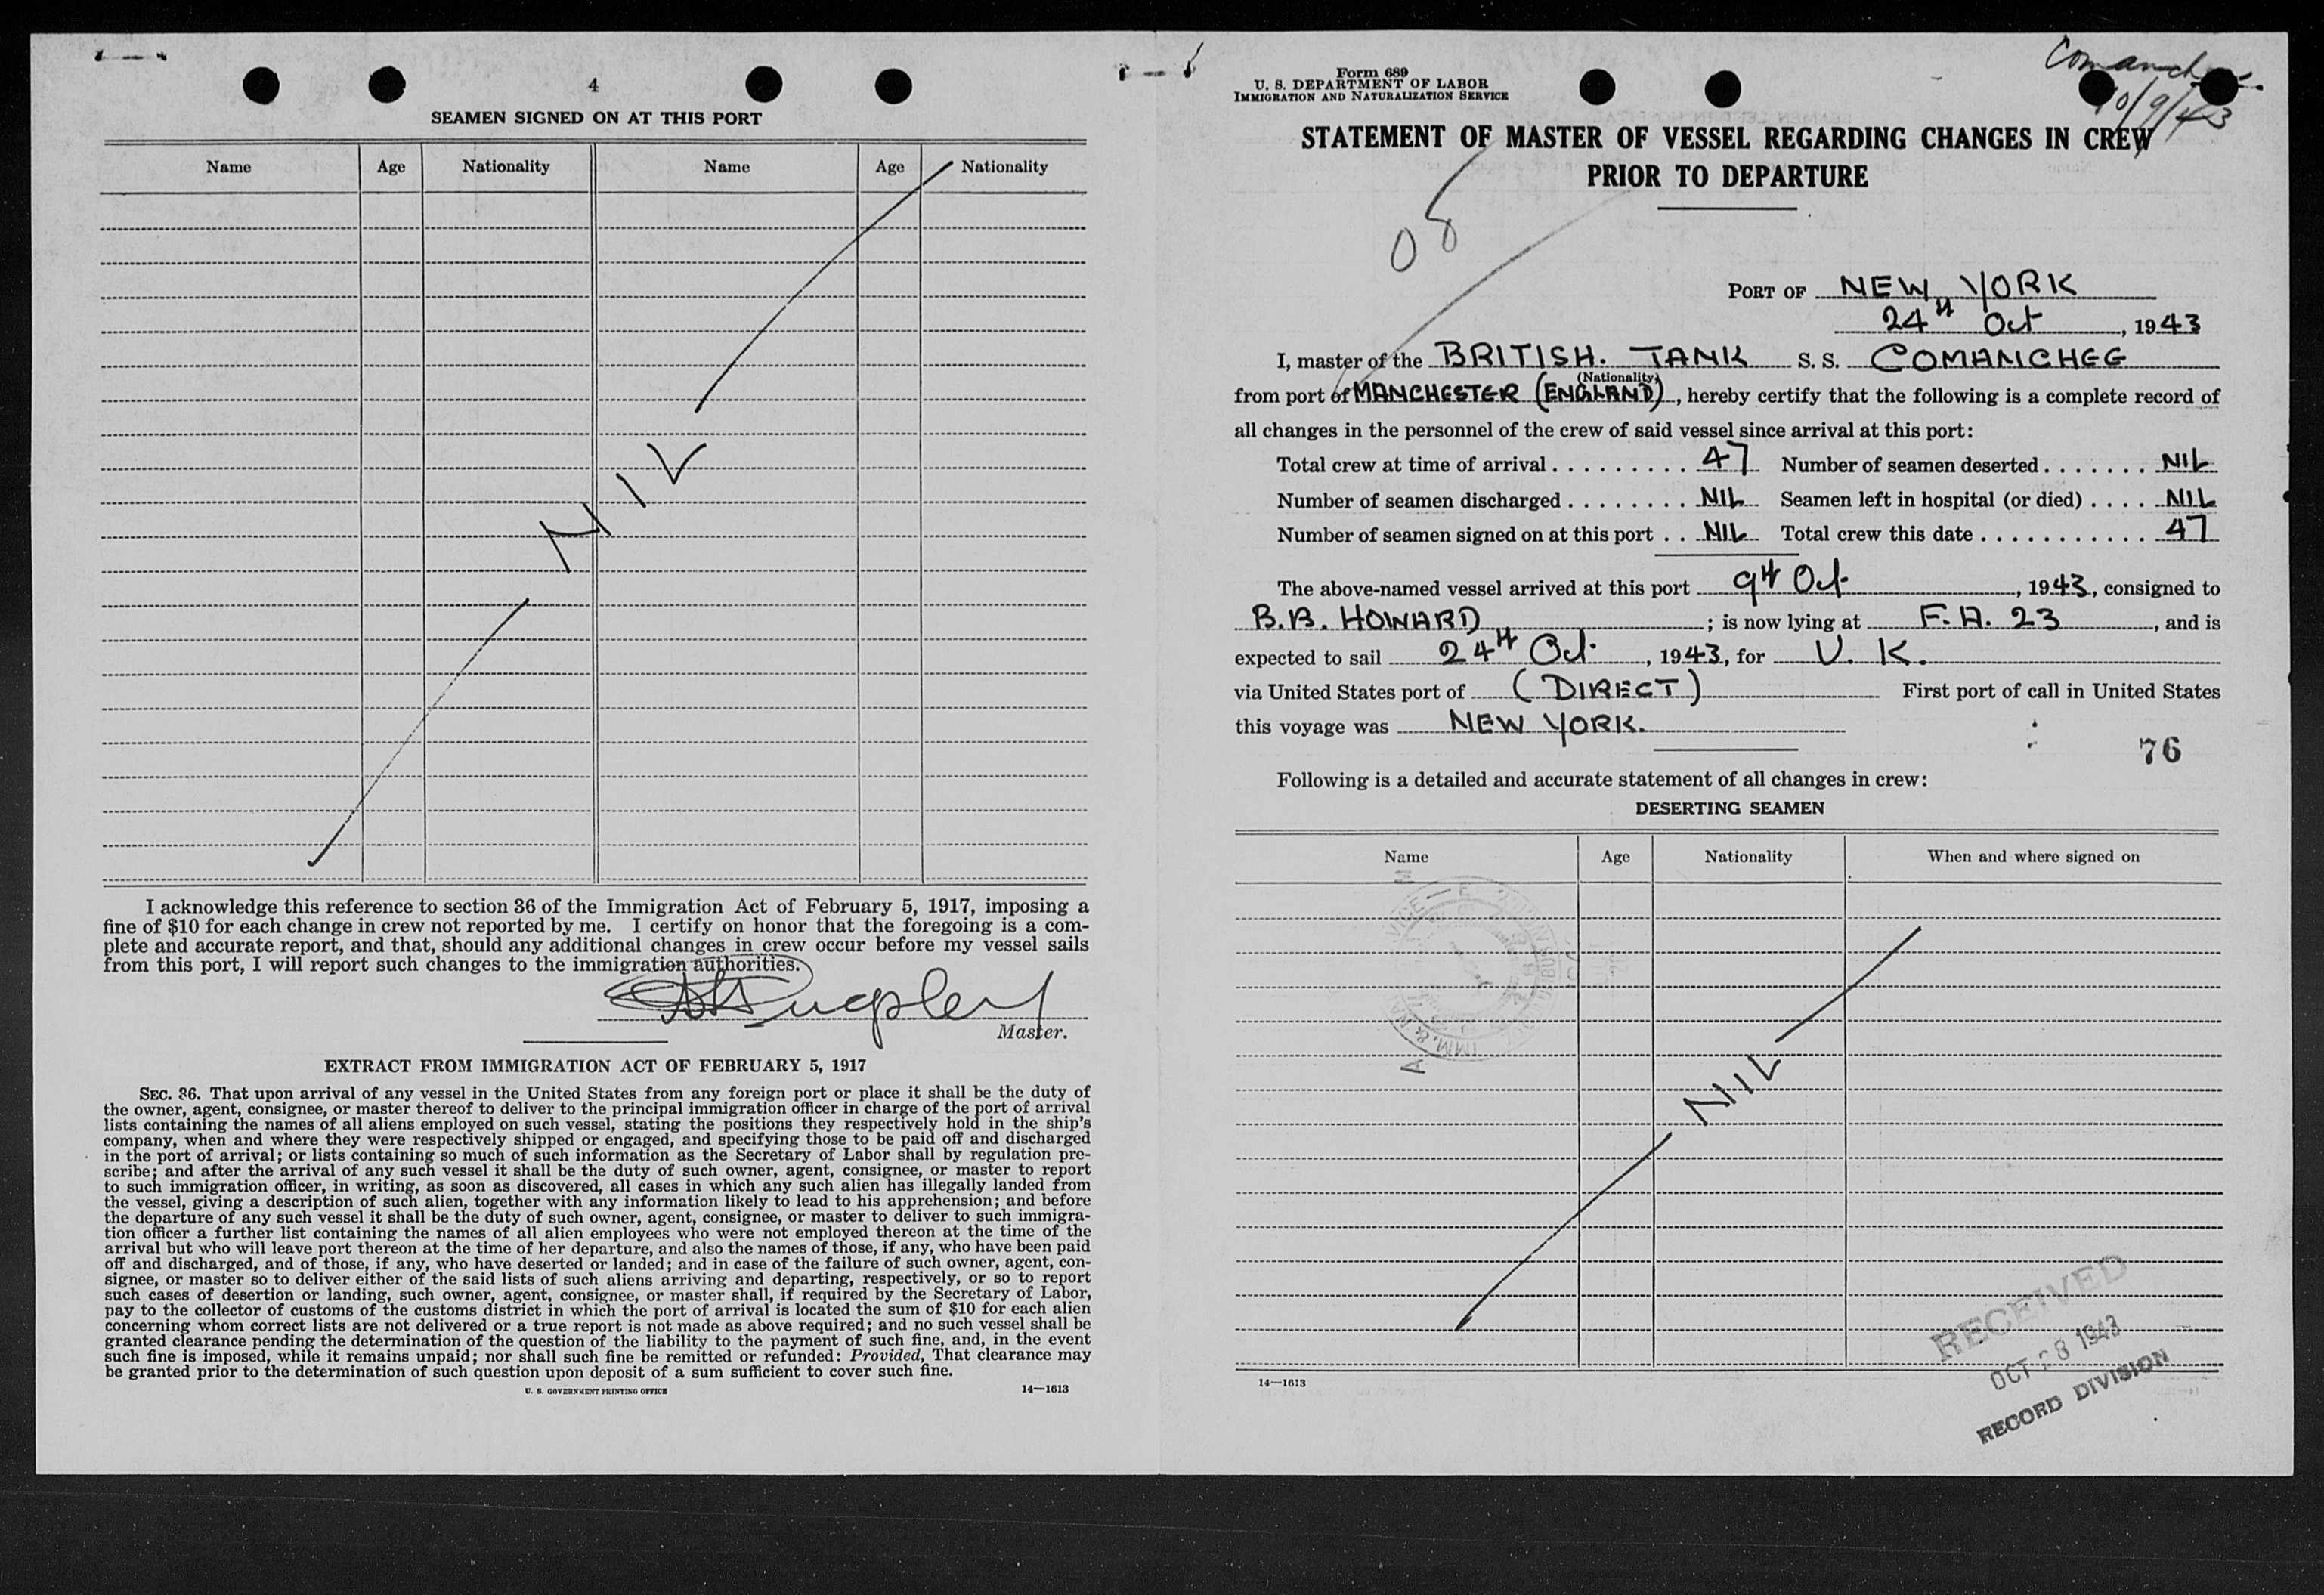 4
SEAMEN SIGNED ON AT THIS PORT
Name Age Nationality Name Age Nationality
NIL
I acknowledge this reference to section 36 of the Immigration Act of February 5, 1917, imposing a
fine of $10 for each change in crew not reported by me. I certify on honor that the foregoing is a com-
plete and accurate report, and that, should any additional changes in crew occur before my vessel sails
from this port, I will report such changes to the immigration authorities.
Master.
EXTRACT FROM IMMIGRATION ACT OF FEBRUARY 5, 1917
SEC. 36. That upon arrival of any vessel in the United States from any foreign port or place it shall be the duty of
the owner, agent, consignee, or master thereof to deliver to the principal immigration officer in charge of the port of arrival
lists containing the names of all aliens employed on such vessel, stating the positions they respectively hold in the ship's
company, when and where they were respectively shipped or engaged, and specifying those to be paid off and discharged
in the port of arrival; or lists containing so much of such information as the Secretary of Labor shall by regulation pre-
scribe; and after the arrival of any such vessel it shall be the duty of such owner, agent, consignee, or master to report
to such immigration officer, in writing, as soon as discovered, all cases in which any such alien has illegally landed from
the vessel, giving a description of such alien, together with any information likely to lead to his apprehension; and before
the departure of any such vessel it shall be the duty of such owner, agent, consignee, or master to deliver to such immigra-
tion officer a further list containing the names of all alien employees who were not employed thereon at the time of the
arrival but who will leave port thereon at the time of her departure, and also the names of those, if any, who have been paid
off and discharged, and of those, if any, who have deserted or landed; and in case of the failure of such owner, agent, con-
signee, or master so to deliver either of the said lists of such aliens arriving and departing, respectively, or so to report
such cases of desertion or landing, such owner, agent, consignee, or master shall, if required by the Secretary of Labor,
pay to the collector of customs of the customs district in which the port of arrival is located the sum of $10 for each alien
concerning whom correct lists are not delivered or a true report is not made as above required; and no such vessel shall be
granted clearance pending the determination of the question of the liability to the payment of such fine, and, in the event
such fine is imposed, while it remains unpaid; nor shall such fine be remitted or refunded: Provided, That clearance may
be granted prior to the determination of such question upon deposit of a sum sufficient to cover such fine.
U. S. GOVERNMENT PRINTING OFFICE 14—1613
Form 689
U. S. DEPARTMENT OF LABOR
IMMIGRATION AND NATURALIZATION SERVICE
10/9/43
STATEMENT OF MASTER OF VESSEL REGARDING CHANGES IN CREW
PRIOR TO DEPARTURE
PORT OF NEW YORK
24th Oct, 1943
I, master of the BRITISH. TANK S. S. COMANCHEE
(Nationality)
from port of MANCHESTER (ENGLAND), hereby certify that the following is a complete record of
all changes in the personnel of the crew of said vessel since arrival at this port:
Total crew at time of arrival . . . . . . . . . 47 Number of seamen deserted . . . . . . . NIL
Number of seamen discharged . . . . . . . . NIL Seamen left in hospital (or died) . . . . NIL
Number of seamen signed on at this port . . NIL Total crew this date . . . . . . . . . . . 47
The above-named vessel arrived at this port 9th Oct., 1943, consigned to
B.B. HOWARD; is now lying at F.A. 23, and is
expected to sail 24th Oct., 1943, for U. K.
via United States port of (DIRECT) First port of call in United States
this voyage was NEW YORK.
76
Following is a detailed and accurate statement of all changes in crew:
DESERTING SEAMEN
Name Age Nationality When and where signed on
NIL
RECEIVED
OCT 28 1943
RECORD DIVISION
14—1613